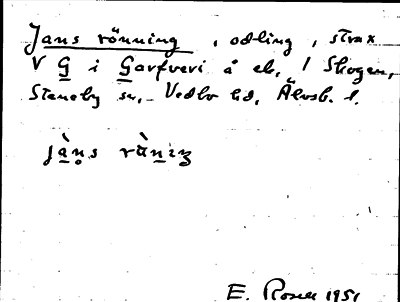 Jans rönning, odling, strax
V G i Garfveri å ek, 1 Skogen,
Steneby sn, Vedbo hd, Älvsb. l.
jàns rö̀niŋ
E. Rosell 1951